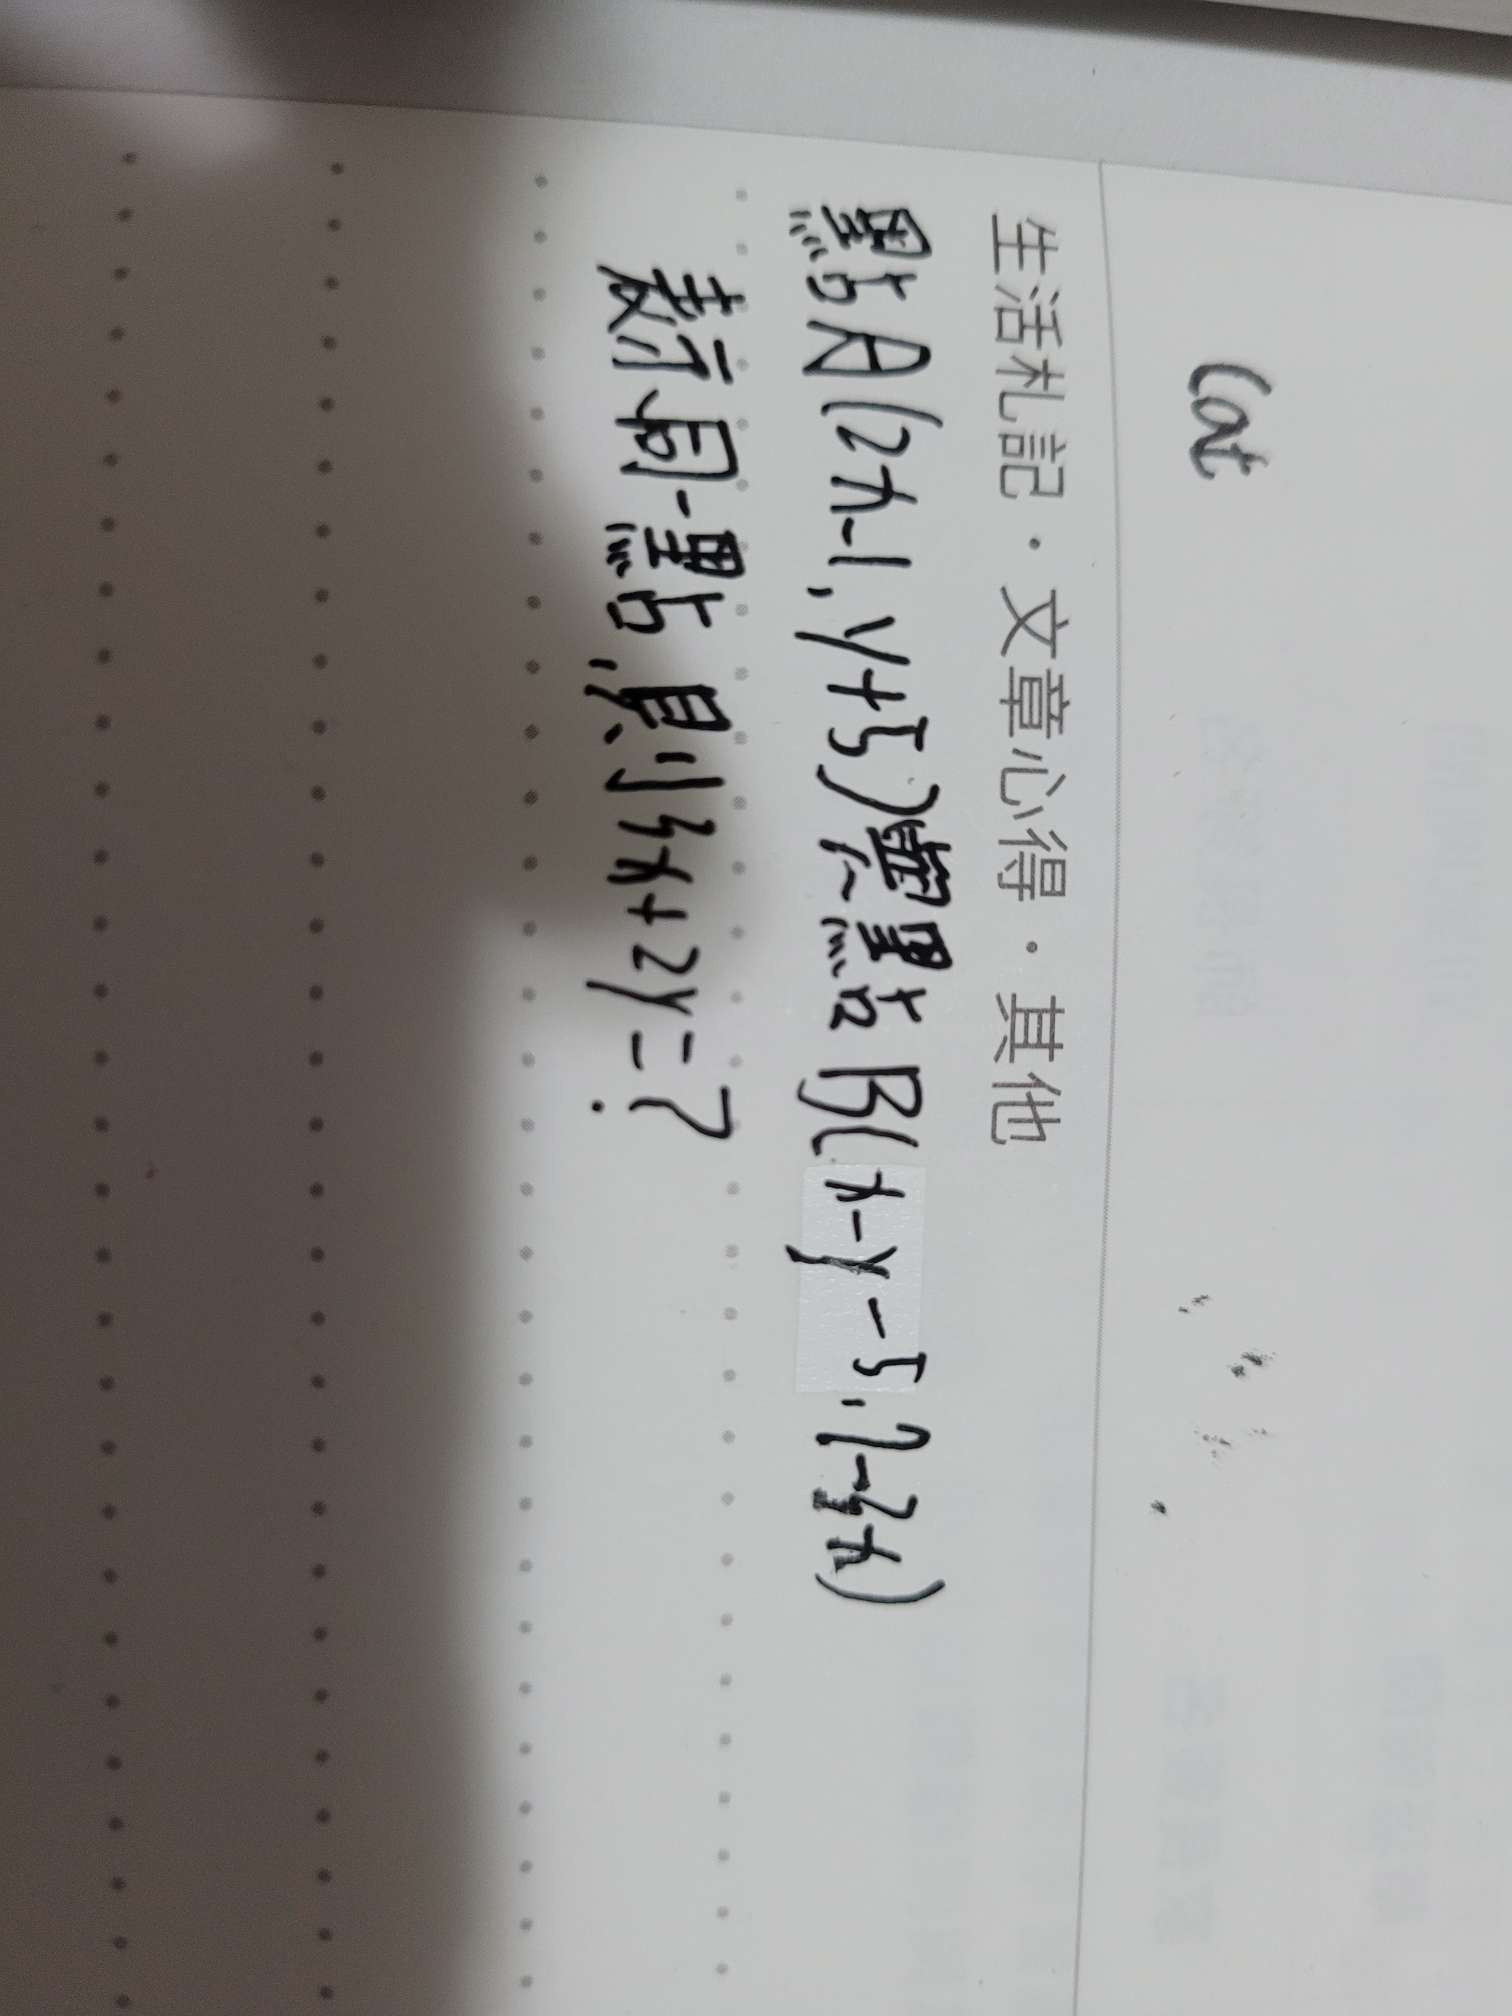 Cat
生活札記．文章心得．其他
點A(2x-1,y+5)與點B(x-y-5,2-3x)
表示同一點,則3x+2y=?